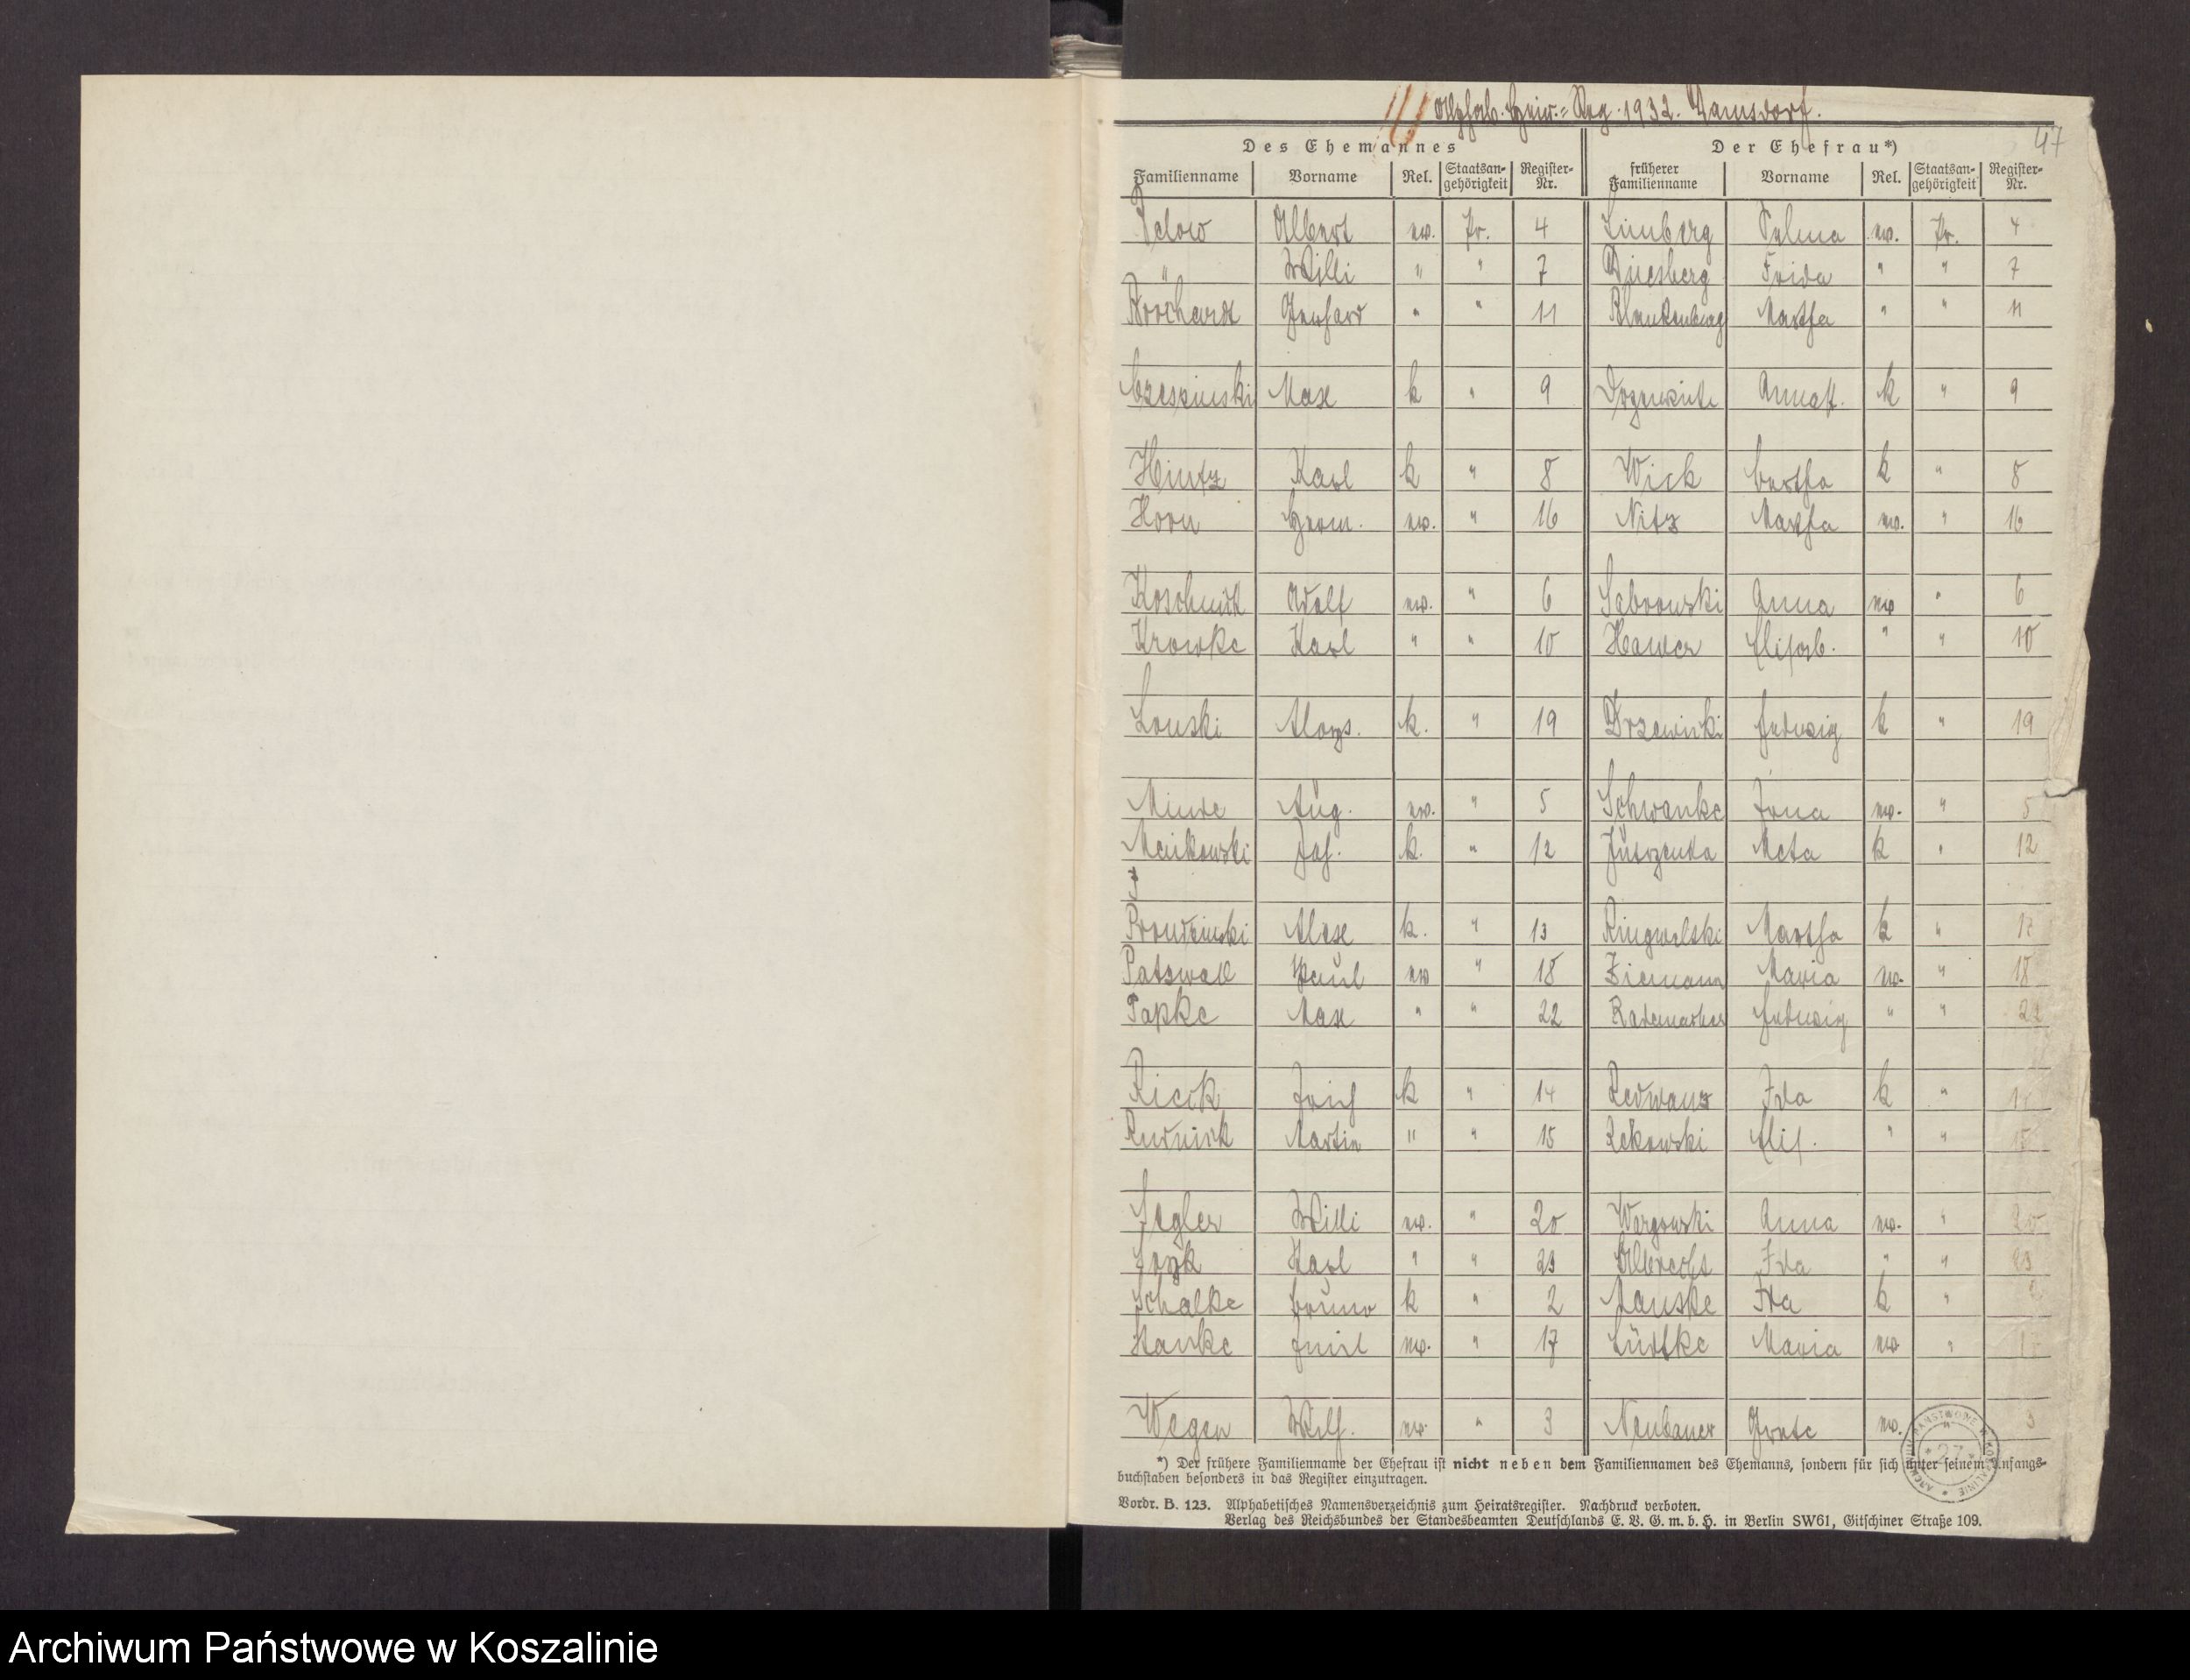 Alphab. Heir.-Reg. 1932. Damsdorf.
47
Des Ehemannes Der Ehefrau*)
Familienname Vorname Rel. Staatsangehörigkeit Register-Nr. früherer Familienname Vorname Rel. Staatsangehörigkeit Register-Nr.
Below Albert ev. Pr. 4 Limberg Selma ev. Pr. 4
" Willi " " 7 Duesberg Frida " " 7
Borchardt Gerhard " " 11 Blankenburg Martha " " 11
Max k " 9 k " 9
Hintz Karl k " 8 Wick Bertha k " 8
Horn Herm. ev. " 16 Nitz Martha ev. " 16
Koschnick Adolf ev. " 6 Sabrowski Anna ev " 6
Kroske Karl " " 10 Hawer Elisab. " " 10
Lonski Aloys. k. " 19 Drzewicki Hedwig k " 19
Minde Aug. ev. " 5 Schwanke Erna ev. " 5
Meikowski Jos. k. " 12 Jutrzenka Meta k " 12
Prondzinski Alex k. " 13 Ringwelski Martha k " 13
Patzwall Paul ev " 18 Ziemann Maria ev. " 18
Papke Max " " 22 Rademacher Hedwig " " 22
Rieck Erich k " 14 Redwanz Ida k " 14
Rudnick Martin " " 15 Rekowski Elis. " " 15
Segler Willi ev. " 20 Wergowski Anna ev. " 20
Karl " " 23 Albrecht Ida " " 23
Schalke Bruno k " 2 Manske Ida k " 2
Stanke Emil ev. " 17 Lüdtke Maria ev " 17
Weger Wilh. ev. " 3 Neubauer Grete ev. 3
*) Der frühere Familienname der Ehefrau ist nicht neben dem Familiennamen des Ehemanns, sondern für sich unter seinem Anfangs-
buchstaben besonders in das Register einzutragen.
Vordr. B. 123. Alphabetisches Namensverzeichnis zum Heiratsregister. Nachdruck verboten.
Verlag des Reichsbundes der Standesbeamten Deutschlands E. V. G. m. b. H. in Berlin SW61, Gitschiner Straße 109.
ARCHIWUM PAŃSTWOWE W KOSZALINIE
* 27 *
Archiwum Państwowe w Koszalinie